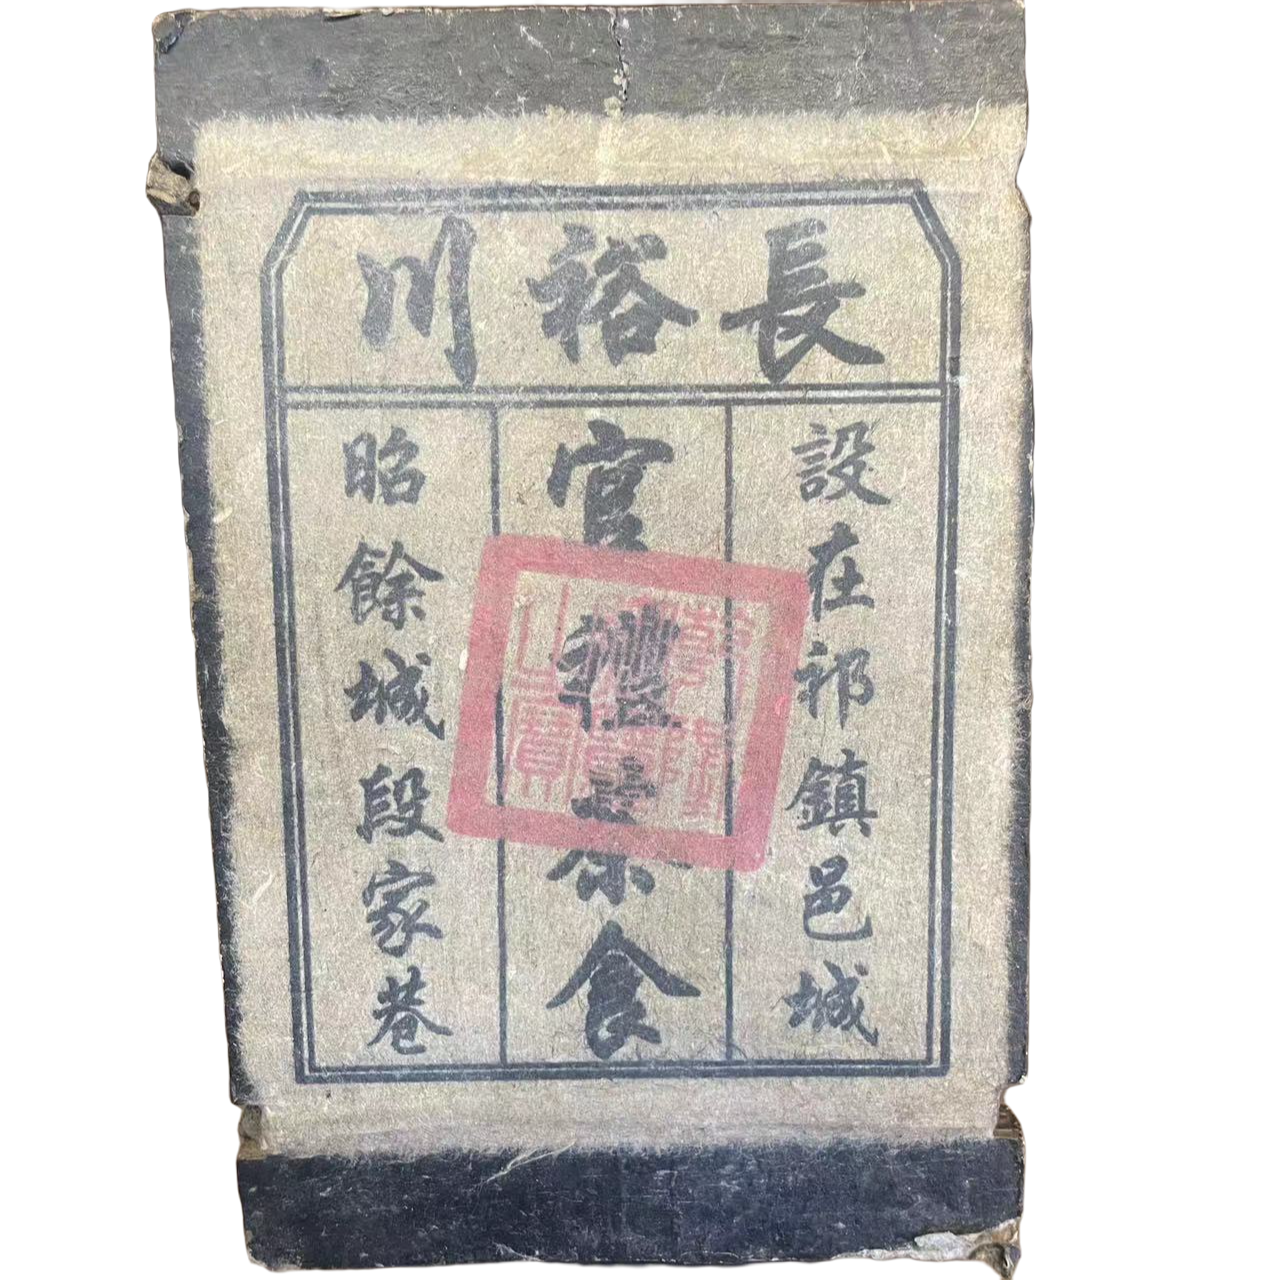 長裕川
設在祁鎮邑城
官禮茶食
昭餘城段家巷